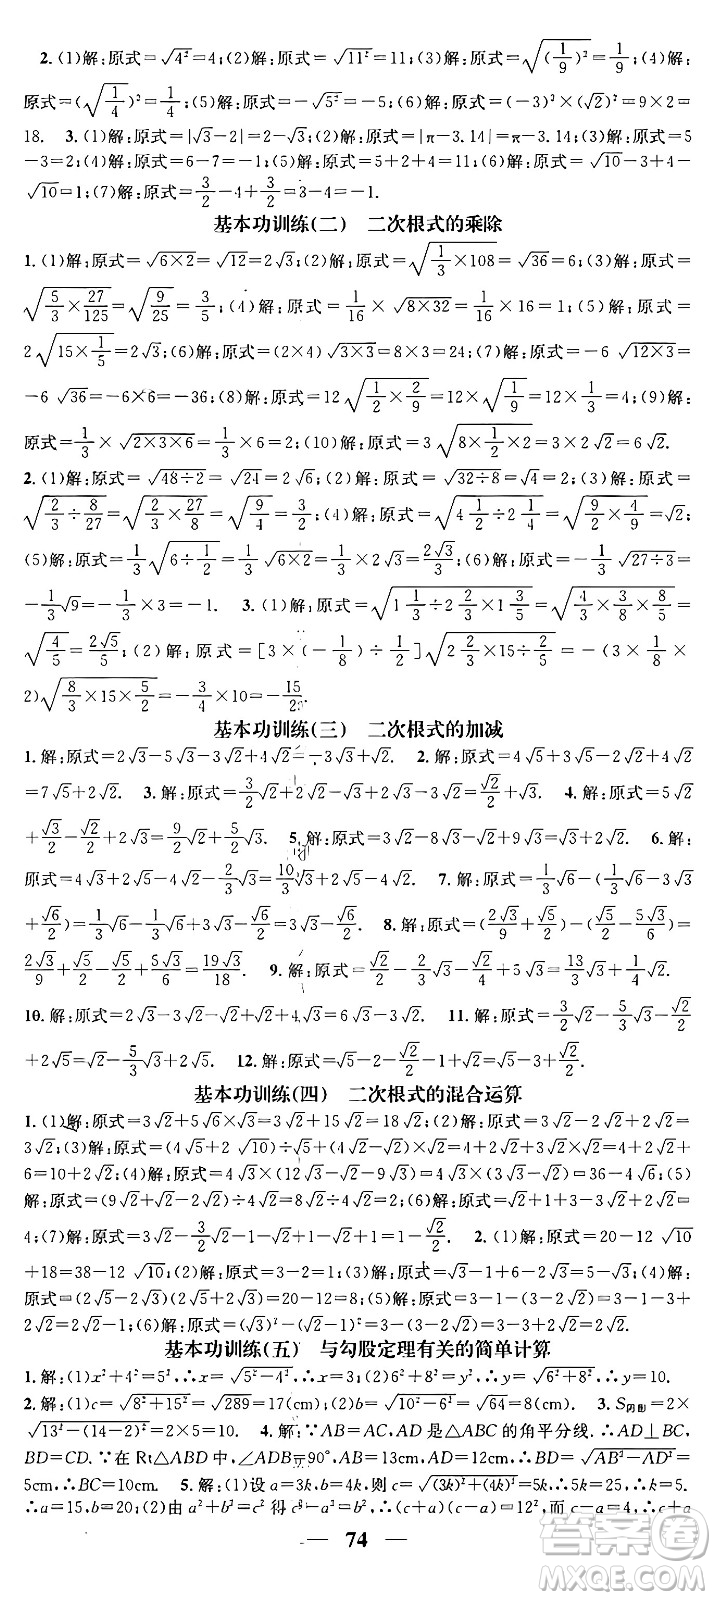 2.(1)解:原式=√(4²)=4;(2)解:原式=√(11²)=11;(3)解:原式=√((1/9)²)=1/9;(4)解:
原式=(√(1/4))²=1/4;(5)解:原式=-√(5²)=-5;(6)解:原式=(-3)²×(√2)²=9×2=
18. 3.(1)解:原式=|√3-2|=2-√3;(2)解:原式=|π-3.14|=π-3.14;(3)解:原式=5
-3=2;(4)解:原式=6-7=-1;(5)解:原式=3+2=5;(6)解:原式=√10-3+4-
√10=1;(7)解:原式=3/2-4+3/2=3-4=-1.
基本功训练(二) 二次根式的乘除
1.(1)解:原式=√(6×2)=√12=2√3;(2)解:原式=√(1/3×108)=√36=6;(3)解:原式=
√(5/3×27/125)=√(9/25)=3/5;(4)解:原式=1/16×√(8×32)=1/16×16=1;(5)解:原式=
2√(15×1/5)=2√3;(6)解:原式=(2×4)√(3×3)=8×3=24;(7)解:原式=-6√(18×2)=
-6√36=-6×6=-36;(8)解:原式=12√(1/2×2/9)=12√(1/9)=12×1/3=4;(9)解:
原式=1/3×√(2×3×6)=1/3×6=2;(10)解:原式=3√(8×1/2×2)=3√8=6√2.
2.(1)解:原式=√(48÷2)=√24=2√6;(2)解:原式=√(32÷8)=√4=2;(3)解:原式=
√(2/3÷8/27)=√(2/3×27/8)=√(9/4)=3/2;(4)解:原式=√(4 1/2÷2 1/4)=√(9/2×4/9)=√2;
(5)解:原式=1/3√(6÷1/2)=1/3√(6×2)=1/3×2√3=2√3/3;(6)解:原式=-1/3√(27÷3)=
-1/3√9=-1/3×3=-1. 3.(1)解:原式=√(1 1/3÷2 2/3×1 3/5)=√(4/3×3/8×8/5)=
√(4/5)=2√5/5;(2)解:原式=[3×(-1/8)÷1/2]√(2 2/3×15×5/2)=-(3×1/8×
2)√(8/3×15×5/2)=-3/4×10=-15/2.
基本功训练(三) 二次根式的加减
1.解:原式=2√3-5√3-3√2+4√2=-3√3+√2. 2.解:原式=4√5+3√5-2√2+4√2
=7√5+2√2. 3.解:原式=3/2√2+2√3-√2-2√3=√2/2. 4.解:原式=5√2
+√3/2-√2/2+2√3=9/2√2+5/2√3. 5.解:原式=3√2-8√3-√2+9√3=√3+2√2. 6.解:
原式=4√3+2√5-4√5-2/3√3=10/3√3-2√5. 7.解:原式=1/3√6-(√6-3√3
+√6/2)=1/3√6-√6+3√3-√6/2=3√3-7/6√6. 8.解:原式=(2√3/9+2√5)-(√5-5√3/6)=
2√3/9+2√5-√5+5√3/6=√5+19√3/18. 9.解:原式=√2/4-2√3/3-√2/4+5√3=13/3√3.
10.解:原式=2√3-3√2+4√3=6√3-3√2. 11.解:原式=3/2√2-√5-√2
+2√5=√5+√2/2. 12.解:原式=√2+√3-√2/2+2/3√3=5/3√3+√2/2.
基本功训练(四) 二次根式的混合运算
1.(1)解:原式=3√2+5√6×√3=3√2+15√2=18√2;(2)解:原式=3√2-2√2+2√2=
3√2;(3)解:原式=(4√5+2√10)÷√5+(4√2-√2)×√2=4+2√2+3√2×√2=4+2√2+
6=10+2√2;(4)解:原式=4√3×(12√3-√2-9√3)=4√3×(3√3-√2)=36-4√6;(5)
解:原式=(9√2+√2-2√2)÷4√2=8√2÷4√2=2;(6)解:原式=√2+1+3-√2=
4;(7)解:原式=√3-3/2√2-√3+2√2-1+1=√2/2. 2.(1)解:原式=20-12√10
+18=38-12√10;(2)解:原式=3-2=1;(3)解:原式=√3-1+6-2√3=5-√3;(4)解:
原式=(2√5-2√3)(2√5+2√3)=20-12=8;(5)解:原式=3-1-(3-2√2)=3-1-3
+2√2=2√2-1.
基本功训练(五) 与勾股定理有关的简单计算
1.解:(1)x²+4²=5²,∴x=√(5²-4²)=3,∴x=3;(2)y²=6²+8²,∴y=√(6²+8²),∴y=10.
2.解:(1)c=√(8²+15²)=√289=17(cm);(2)b=√(10²-6²)=√64=8(cm). 3.S=2×
√(13²-(14-2)²)=2×5=10. 4.解:∵AB=AC,AD是△ABC的角平分线.∴AD⊥BC,
BD=CD.∵在Rt△ABD中,∠ADB=90°,AB=13cm,AD=12cm,∴BD=√(AB²-AD²)=
5cm,∴BC=10cm. 5.解:(1)设a=3k,b=4k,则c=√((3k)²+(4k)²)=5k=25,∴k=5.
∴a=15,b=20;(2)由a²+b²=c²得c²-a²=b²=12²,而c-a=4,∴c+a
74
答案圈
MXQE.COM